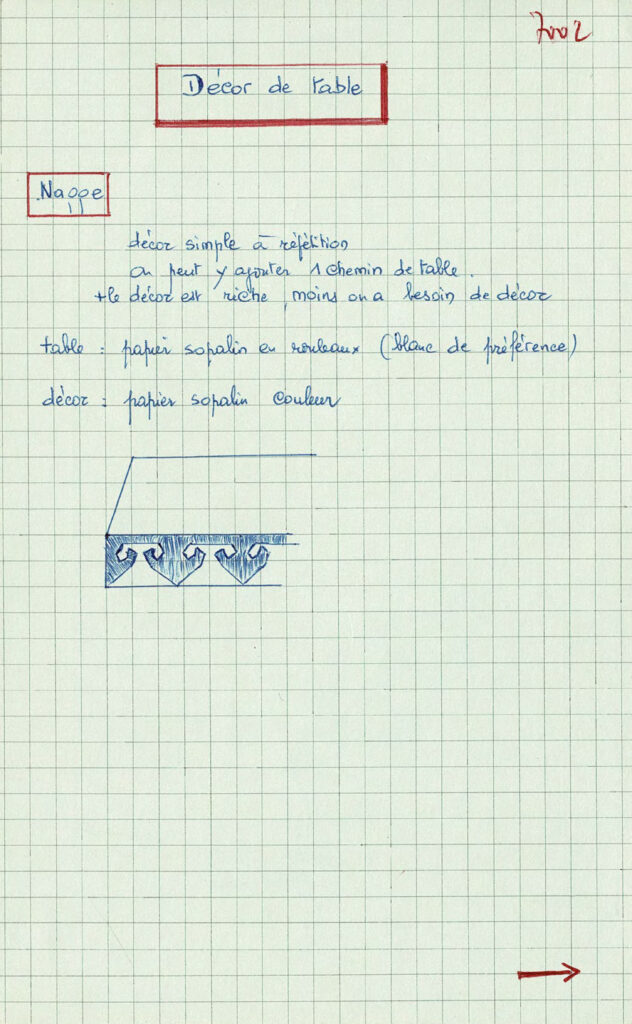 7002
Décor de table
Nappe
décor simple à répétition
on peut y ajouter 1 chemin de table.
+ le décor est riche, moins on a besoin de décor
table : papier sopalin en rouleaux (blanc de préférence)
décor : papier sopalin couleur